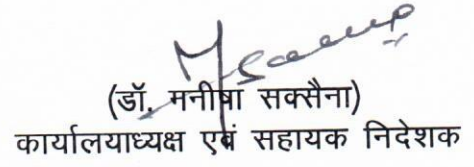 (डॉ. मनीषा सक्सैना)
कार्यालयाध्यक्ष एवं सहायक निदेशक